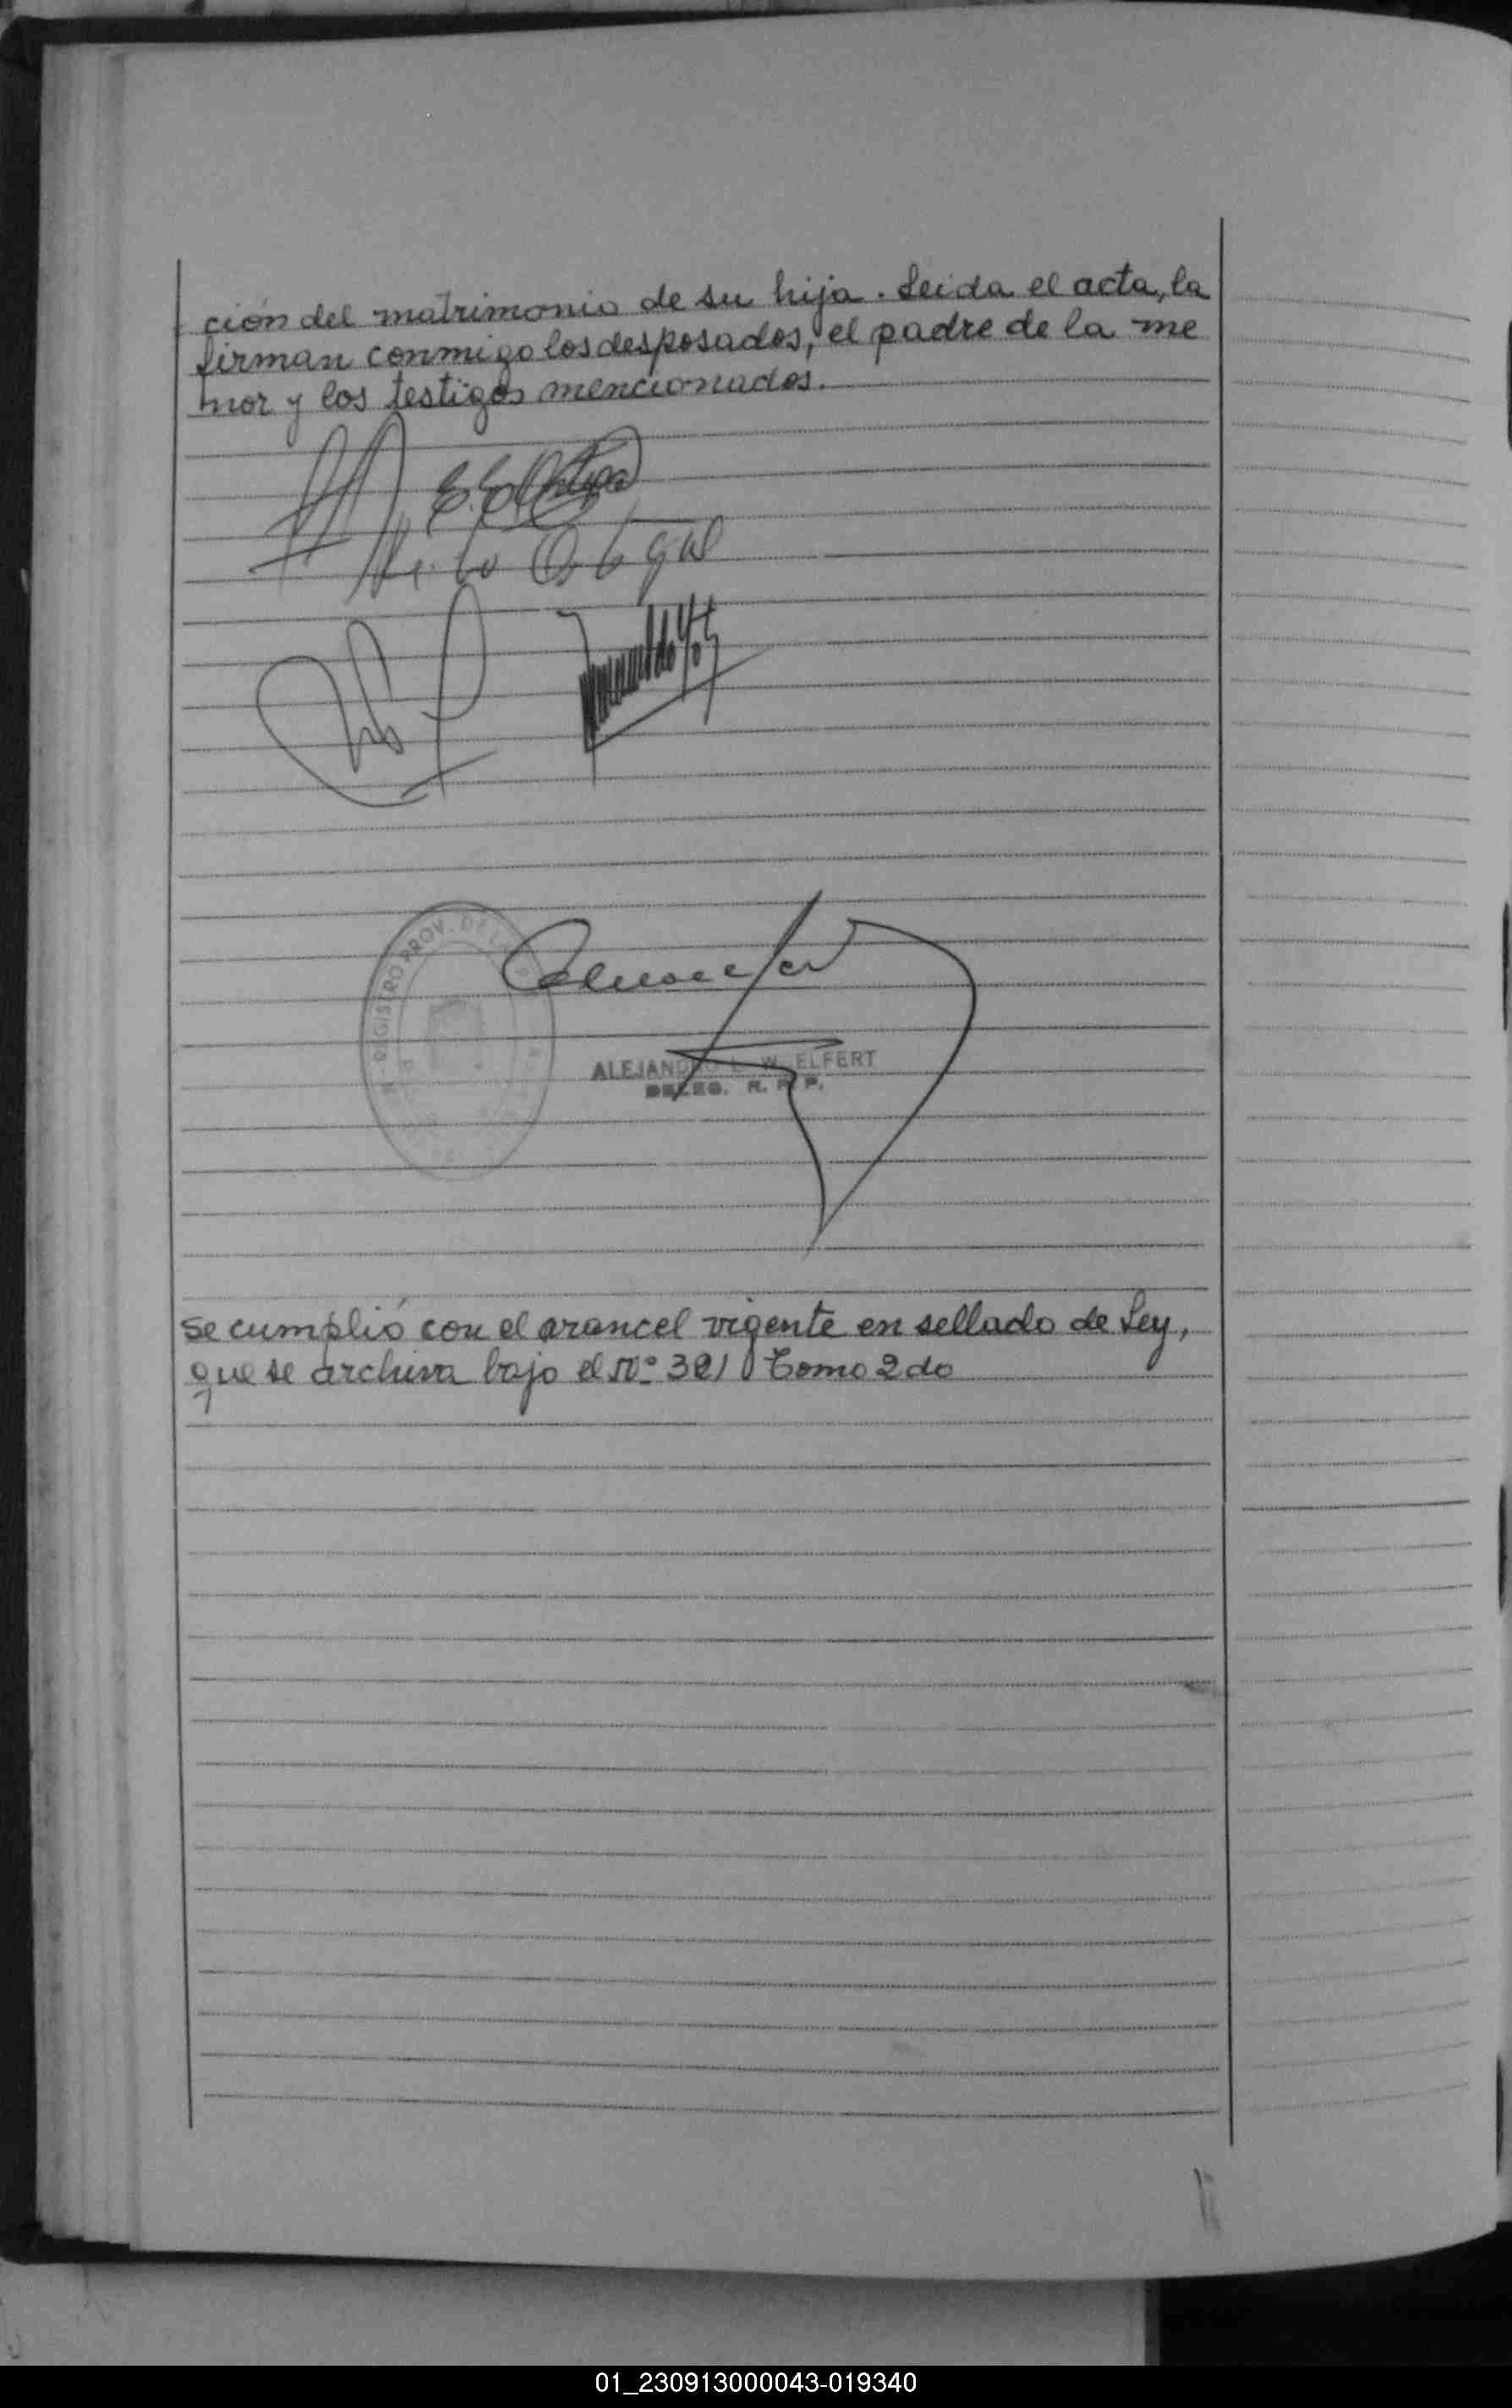 ción del matrimonio de su hija. Leida el acta, la
firman conmigo los desposados, el padre de la me
nor y los testigos mencionados.
REGISTRO PROV. DE
ALEJANDRO L. W. ELFERT
DELEG. R. P. P.
Se cumplió con el arancel vigente en sellado de Ley,
que se archiva bajo el Nº 321 Tomo 2do
01_230913000043-019340